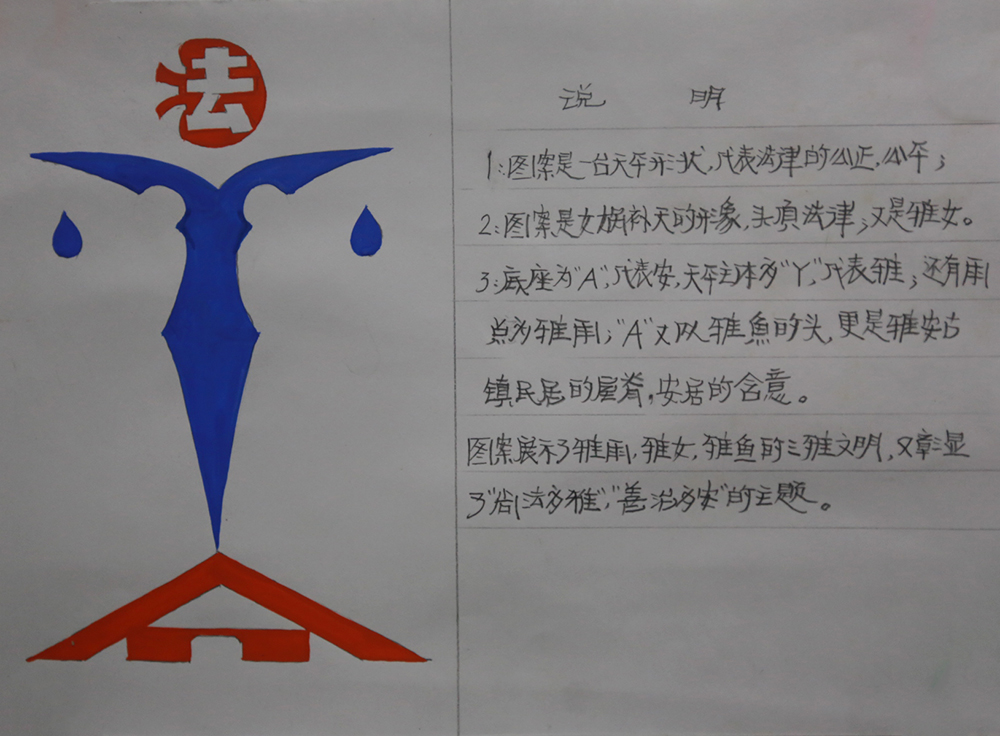 法
说 明
1:图案是一台天平形状,代表法律的公正,公平;
2:图案是女娲补天的形象,头顶法律;又是雅女。
3:底座为"A",代表安,天平主体为"Y",代表雅;还有雨
点为雅雨;"A"又似雅魚的头,更是雅安古
镇民居的屋脊,安居的含意。
图案展示了雅雨,雅女,雅鱼的三雅文明,又彰显
了"尚法为雅","善治为安"的主题。